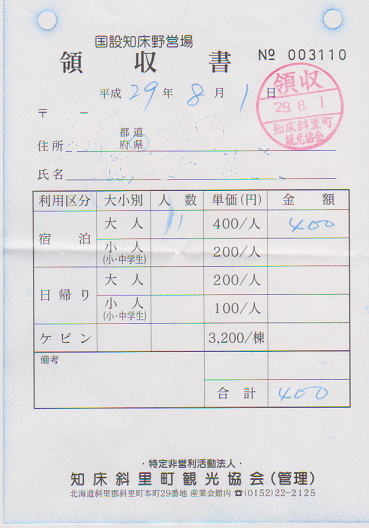 国設知床野営場
領収書 № 003110
平成 29 年 8 月 1 日
領収
29.8.1
知床斜里町
観光協会
〒 －
住所 都道府県
氏名
利用区分 大小別 人数 単価(円) 金額
宿泊 大人 1 400/人 400
小人(小・中学生) 200/人
日帰り 大人 200/人
小人(小・中学生) 100/人
ケビン 3,200/棟
備考
合計 400
・特定非営利活動法人・
知床斜里町観光協会(管理)
北海道斜里郡斜里町本町29番地 産業会館内 ☎(0152)22-2125